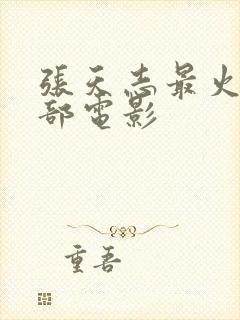 張天志最火
部電影
重吾